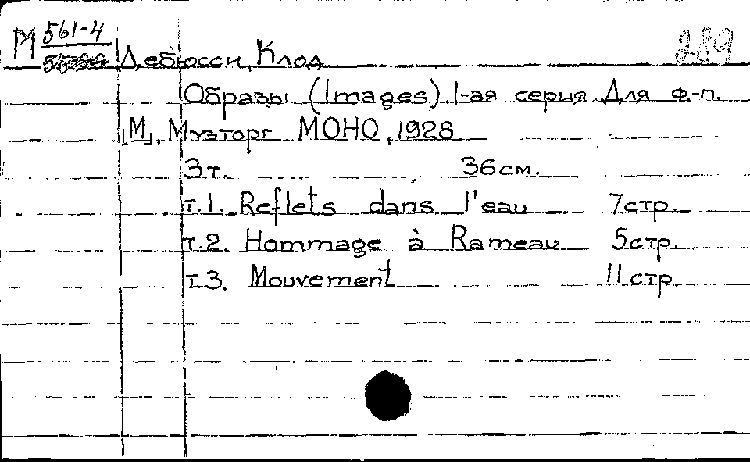 М 561-4
Дебюсси, Клод 289
Образы (Images) 1-ая серия Для ф.-п.
[М], Музторг МОНО, 1928
3т. 36см.
т.1. Reflets dans l'eau 7стр.
т.2. Hommage à Rameau 5стр.
т.3. Mouvement 11стр.